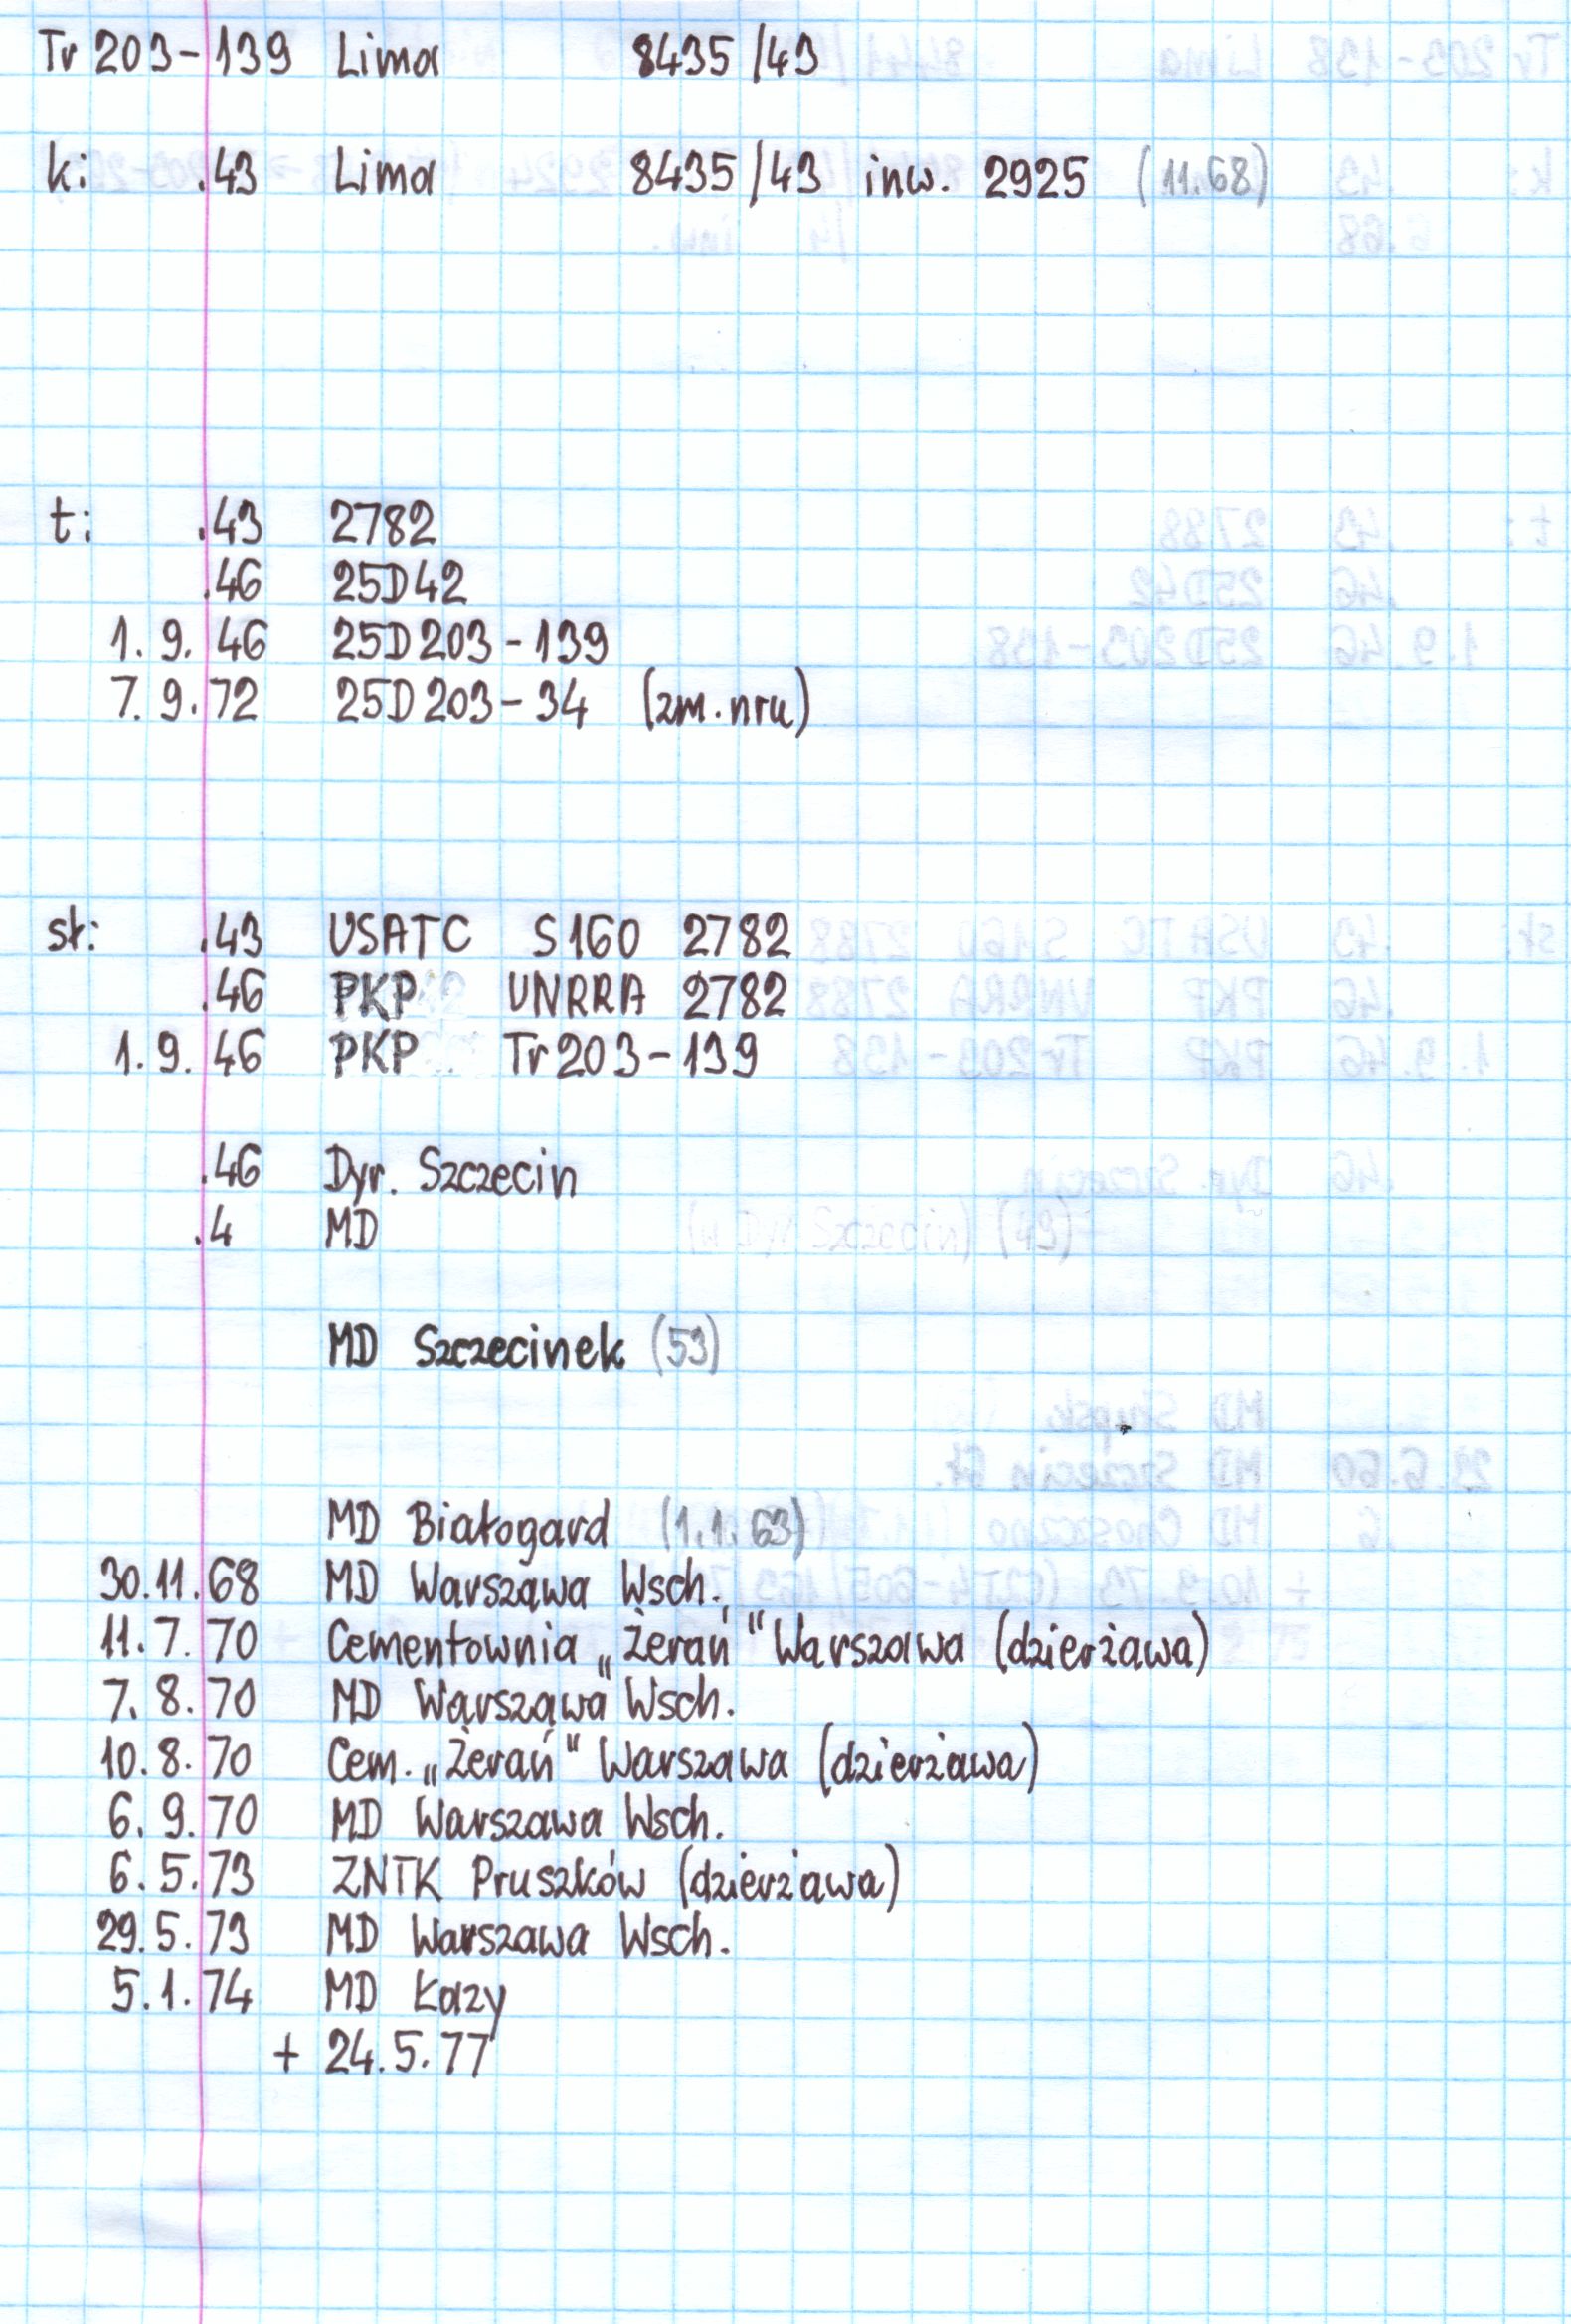 Tr 203-139 Lima 8435/43
k: .43 Lima 8435/43 inw. 2925 (11.68)
t: .43 2782
.46 25D42
1.9.46 25D203-139
7.9.72 25D203-34 (zm.nru)
st: .43 USATC S160 2782
.46 PKP UNRRA 2782
1.9.46 PKP Tr203-139
.46 Dyr. Szczecin
.4 MD
MD Szczecinek (53)
MD Białogard (1.1.63)
30.11.68 MD Warszawa Wsch.
11.7.70 Cementownia „Żerań" Warszawa (dzierżawa)
7.8.70 MD Warszawa Wsch.
10.8.70 Cem. „Żerań" Warszawa (dzierżawa)
6.9.70 MD Warszawa Wsch.
6.5.73 ZNTK Pruszków (dzierżawa)
29.5.73 MD Warszawa Wsch.
5.1.74 MD Łazy
+ 24.5.77